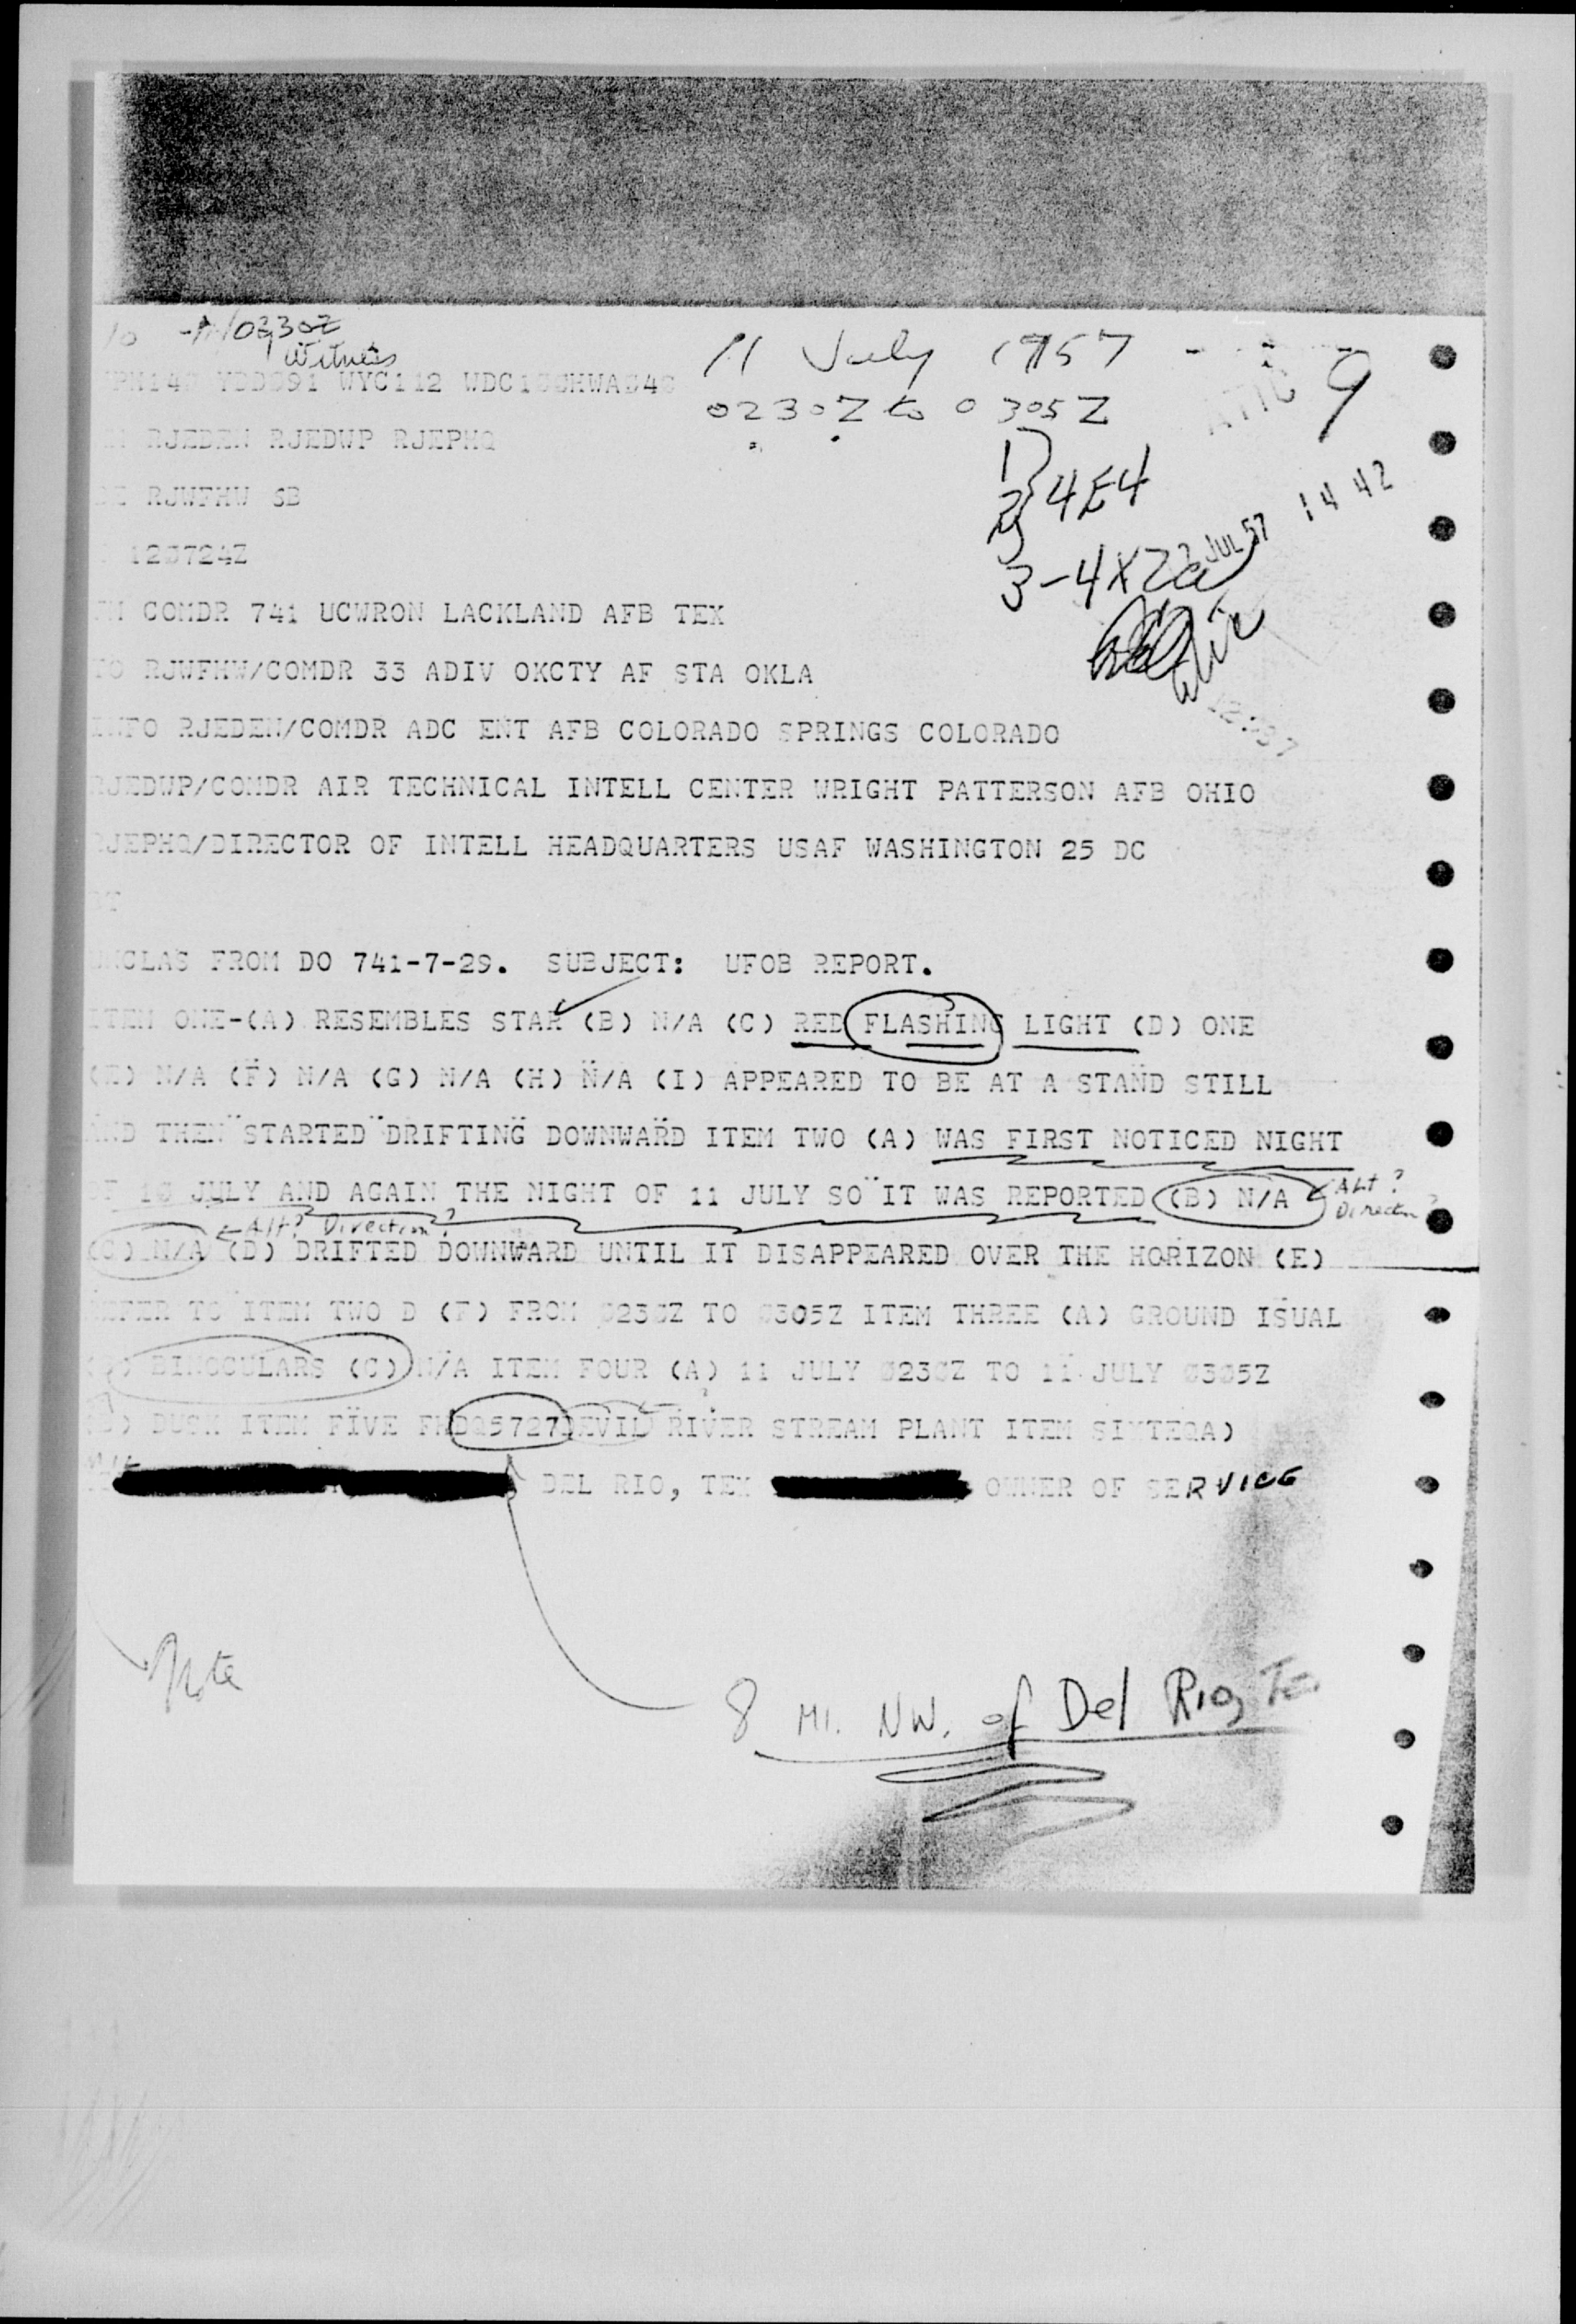 10 0230Z
Witness
11 July 1957
9
WYC112
0230Z to 0305Z
RJEDEN RJEDWP RJEPHQ
1
2 } 4E4
RJWFHW
3-4X2a
JUL 57 14 42
COMDR 741 UCWRON LACKLAND AFB TEX
TO RJWFHW/COMDR 33 ADIV OKCTY AF STA OKLA
INFO RJEDEN/COMDR ADC ENT AFB COLORADO SPRINGS COLORADO
RJEDWP/COMDR AIR TECHNICAL INTELL CENTER WRIGHT PATTERSON AFB OHIO
RJEPHQ/DIRECTOR OF INTELL HEADQUARTERS USAF WASHINGTON 25 DC
UNCLAS FROM DO 741-7-29. SUBJECT: UFOB REPORT.
ITEM ONE-(A) RESEMBLES STAR (B) N/A (C) RED FLASHING LIGHT (D) ONE
(E) N/A (F) N/A (G) N/A (H) N/A (I) APPEARED TO BE AT A STAND STILL
AND THEN STARTED DRIFTING DOWNWARD ITEM TWO (A) WAS FIRST NOTICED NIGHT
OF 10 JULY AND AGAIN THE NIGHT OF 11 JULY SO IT WAS REPORTED (B) N/A Alt?
Direction
Alt? Direction?
(C) N/A (D) DRIFTED DOWNWARD UNTIL IT DISAPPEARED OVER THE HORIZON (E)
REFER TO ITEM TWO D (F) FROM 0230Z TO 0305Z ITEM THREE (A) GROUND ISUAL
BINOCULARS (C) N/A ITEM FOUR (A) 11 JULY 0230Z TO 11 JULY 0305Z
DUSK ITEM FIVE FHDQ5727 DEVIL RIVER STREAM PLANT ITEM
DEL RIO, TEX OWNER OF SERVICE
Note
8 MI. NW. of Del Rio, Tex